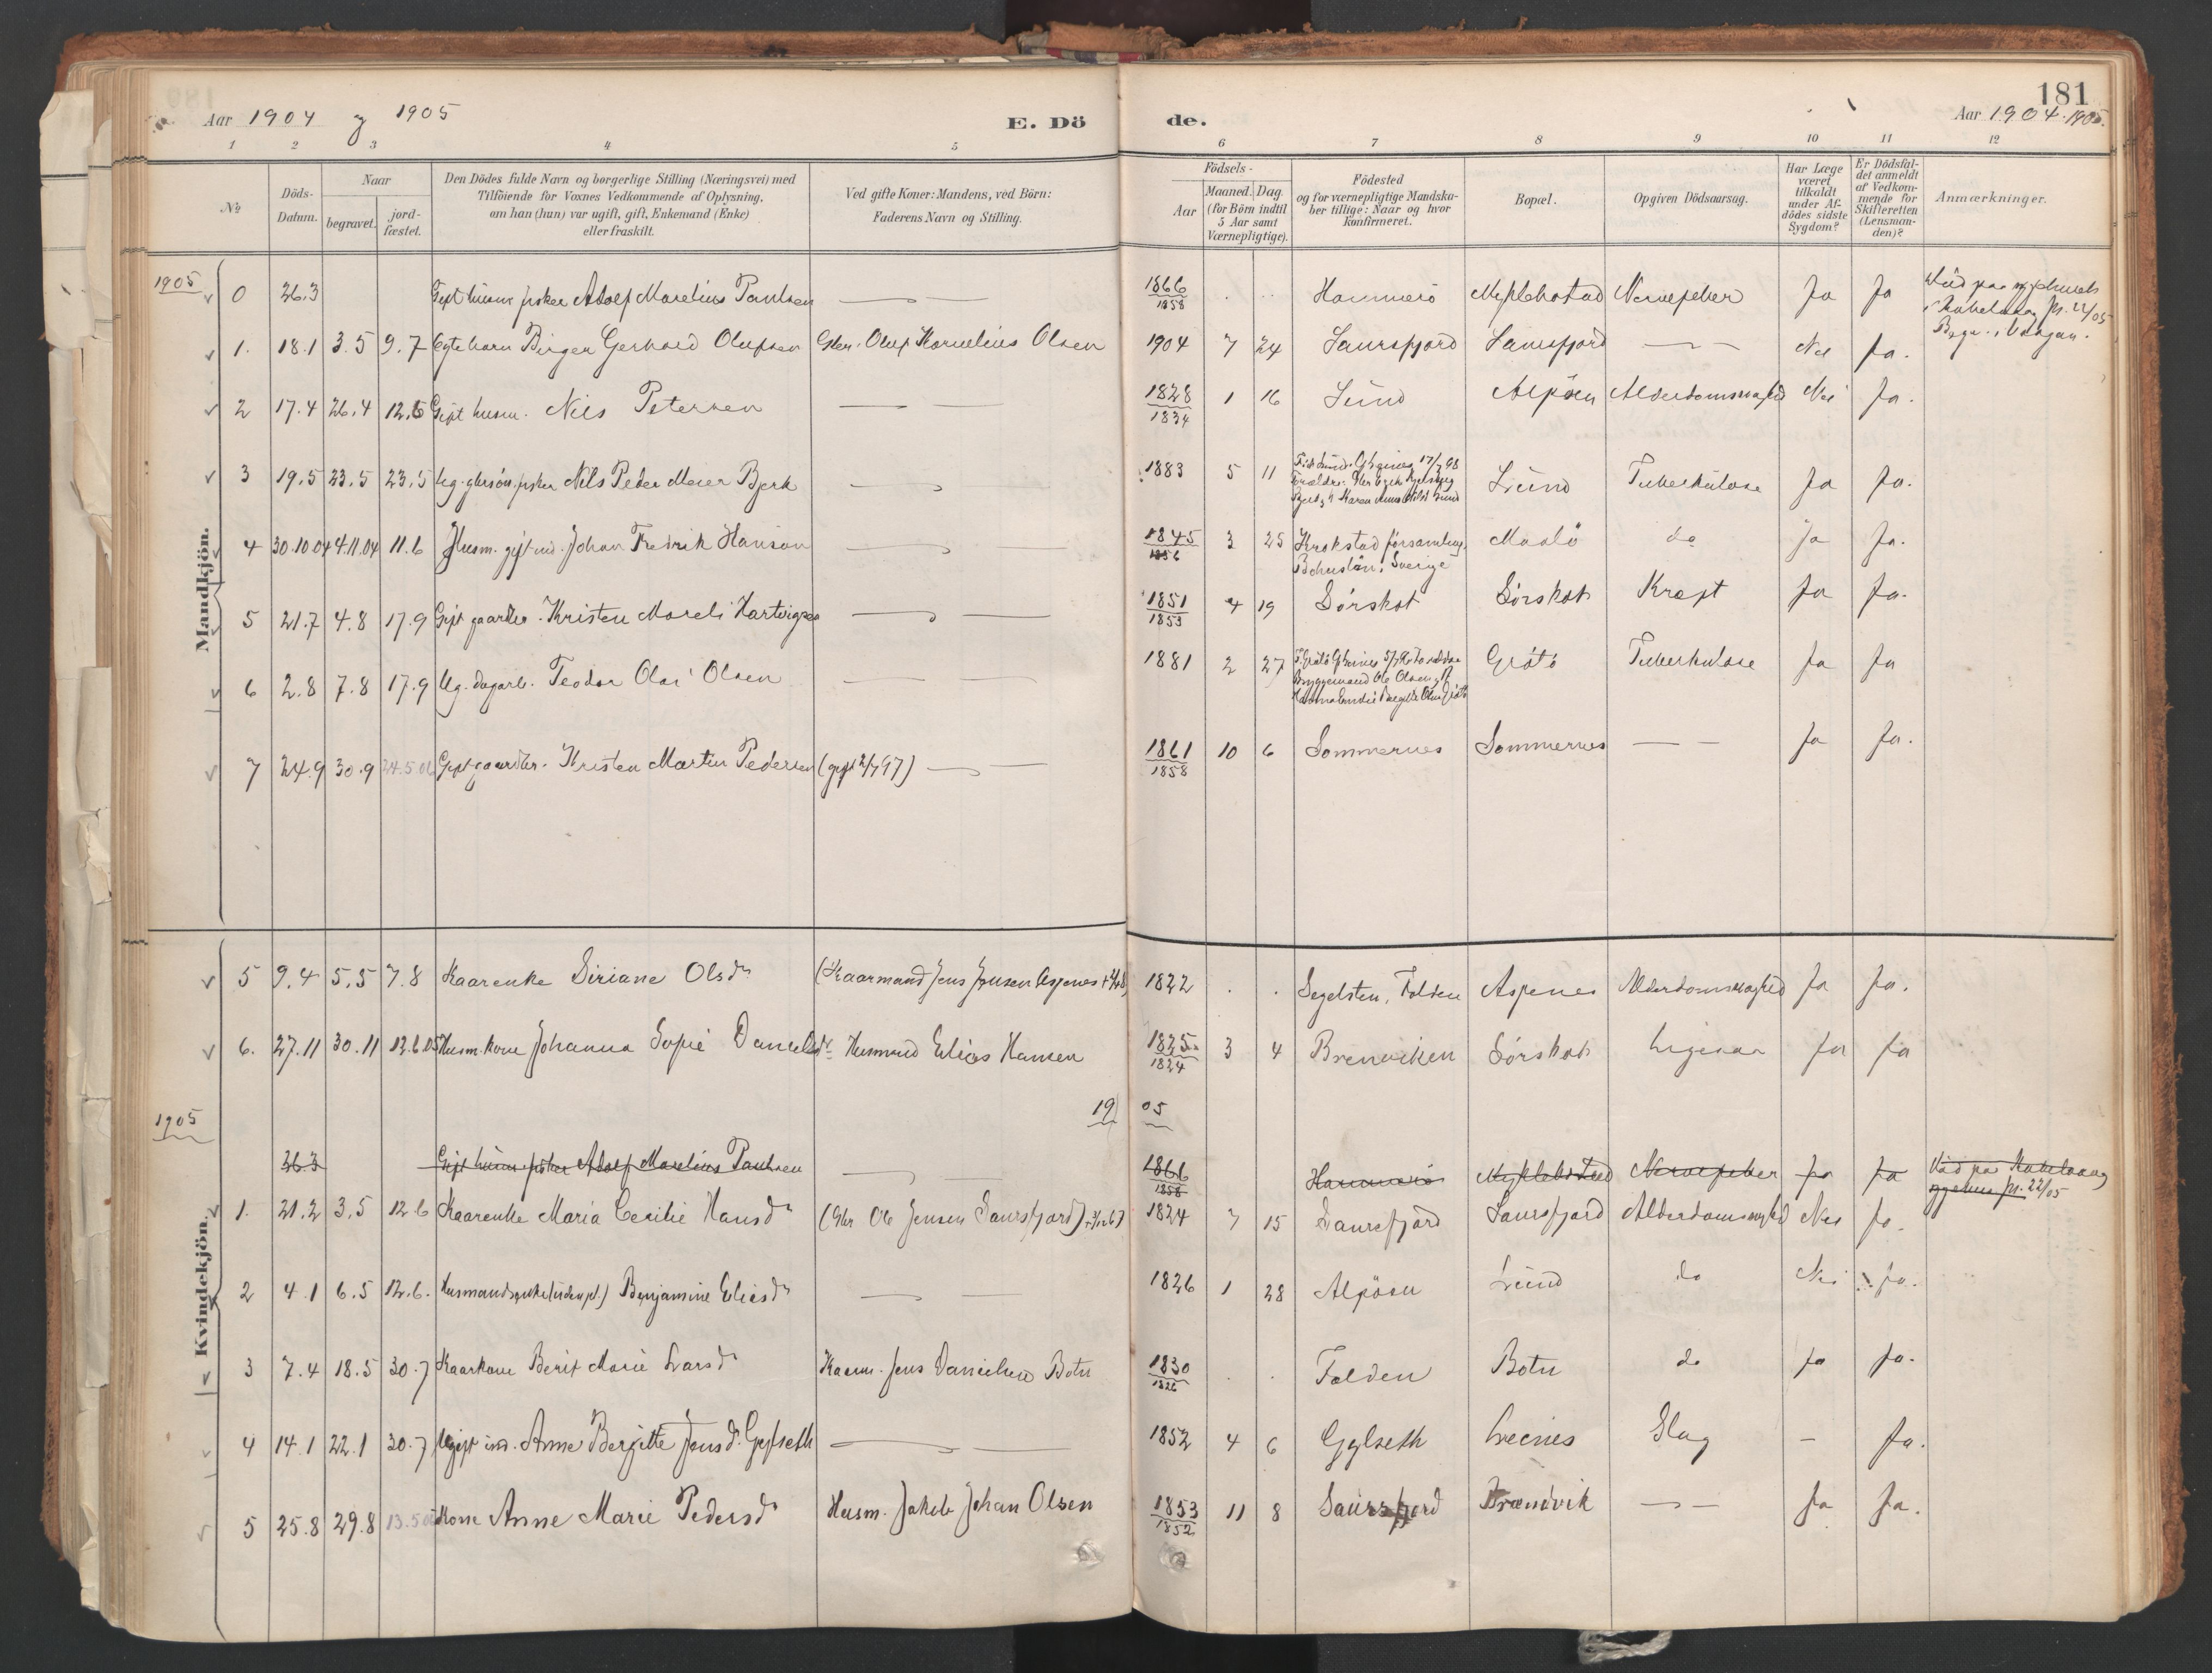 181
Aar 1904 og 1905
E. Dö
de.
Aar 1904. 1905.
1 2 3 4 5 6 7 8 9 10 11 12
No
Döds-Datum.
Naar
begravet.
jord-fæstet.
Den Dödes fulde Navn og borgerlige Stilling (Næringsvei) med
Tilföiende for Voxnes Vedkommende af Oplysning,
om han (hun) var ugift, gift, Enkemand (Enke)
eller fraskilt.
Ved gifte Koner: Mandens, ved Börn:
Faderens Navn og Stilling.
Födsels-
Aar
Maaned. Dag.
(for Börn indtil
5 Aar samt
Værnepligtige).
Födested
og for værnepligtige Mandska-
ber tillige: Naar og hvor
konfirmeret.
Bopæl.
Opgiven Dödsaarsag.
Har Læge
været
tilkaldt
under Af-
dödes sidste
Sygdom?
Er Dödsfal-
det anmeldt
af Vedkom-
mende for
Skifteretten
(Lensman-
den)?
Anmærkninger.
Mandkjön.
1905
0 26.3 Gift husm fisker Adolf Marelius Paulsen 1866 1858 Hammerö Myklebostad Nervefeber Ja Ja
1. 18.1 3.5 9.7 Ægtebarn Birger Gerhard Olufsen Gbr. Oluf Kornelius Olsen 1904 7 24 Saursfjord Saursfjord Nei Ja.
2 17.4 26.4 12.6 Gift husm. Nils Petersen 1828 1834 1 16 Lund Alpöen Alderdomssvaghed Nei Ja.
3 19.5 23.5 23.5 Ug. gbrsön. fisker Nils Peder Meier Bjerk 1883 5 11 Lund Tuberkulose Ja Ja.
4 30.10.04 4.11.04 11.6 Husm. gift ind. Johan Fredrik Hanson 1845 1856 3 25 Krokstad församling, Bohuslän, Sverige Maalö do Ja Ja.
5 21.7 4.8 17.9 Gift gaardbr. Kristen Mareli Hartvigsen 1851 1853 4 19 Sörskot Sörskot Kræft Ja Ja.
6 2.8 7.8 17.9 Ug. dagarb. Teodor Olai Olsen 1881 2 27 Grötö Tuberkulose Ja Ja
7 24.9 30.9 24.5.06 Gift gaardbr. Kristen Martin Pedersen (gift 2/7 97) 1861 1858 10 6 Sommernes Sommernes Ja Ja.
Kvindekjön.
5 9.4 5.5 7.8 Kaarenke Siriane Olsdr (Kaarmand Jens Jensen Aspenes 1822 Segelsten, Folden Aspenes Alderdomssvaghed Ja Ja.
6. 27.11 30.11 12.6.05 Husm.kone Johanna Sofie Danielsdr Husmand Elias Hansen 1825 1824 3 4 Brenviken Sörskot Ja Ja
1905
1905
26.3 Gift husm fisker Adolf Marelius Paulsen 1866 1858 Hammerö Myklebostad Nervefeber Ja Ja
1. 21.2 3.5 12.6 Kaarenke Maria Cecilie Hansdr (Gbr Ole Jensen Saursfjord) 1824 7 15 Saursfjord Saursfjord Alderdomssvaghed Nei Ja.
2 4.1 6.5 12.6. Benjamine Eliasdr 1826 1 28 Alpöen Lund do Nei Ja.
3 7.4 18.5 30.7 Kaarkone Berit Marie Larsdr Kaarm. Jens Danielsen Botn 1830 1826 Folden Botn do Ja Ja.
4 14.1 22.1 30.7 Ugift ind. Anne Bergitte Jensdr. Gylseth 1852 4 6 Gylseth Leines Slag – Ja.
5 25.8 29.8 Kone Anne Marie Pedersdr Husm. Jakob Johan Olsen 1853 1852 11 8 Saursfjord Brændvik Ja Ja.